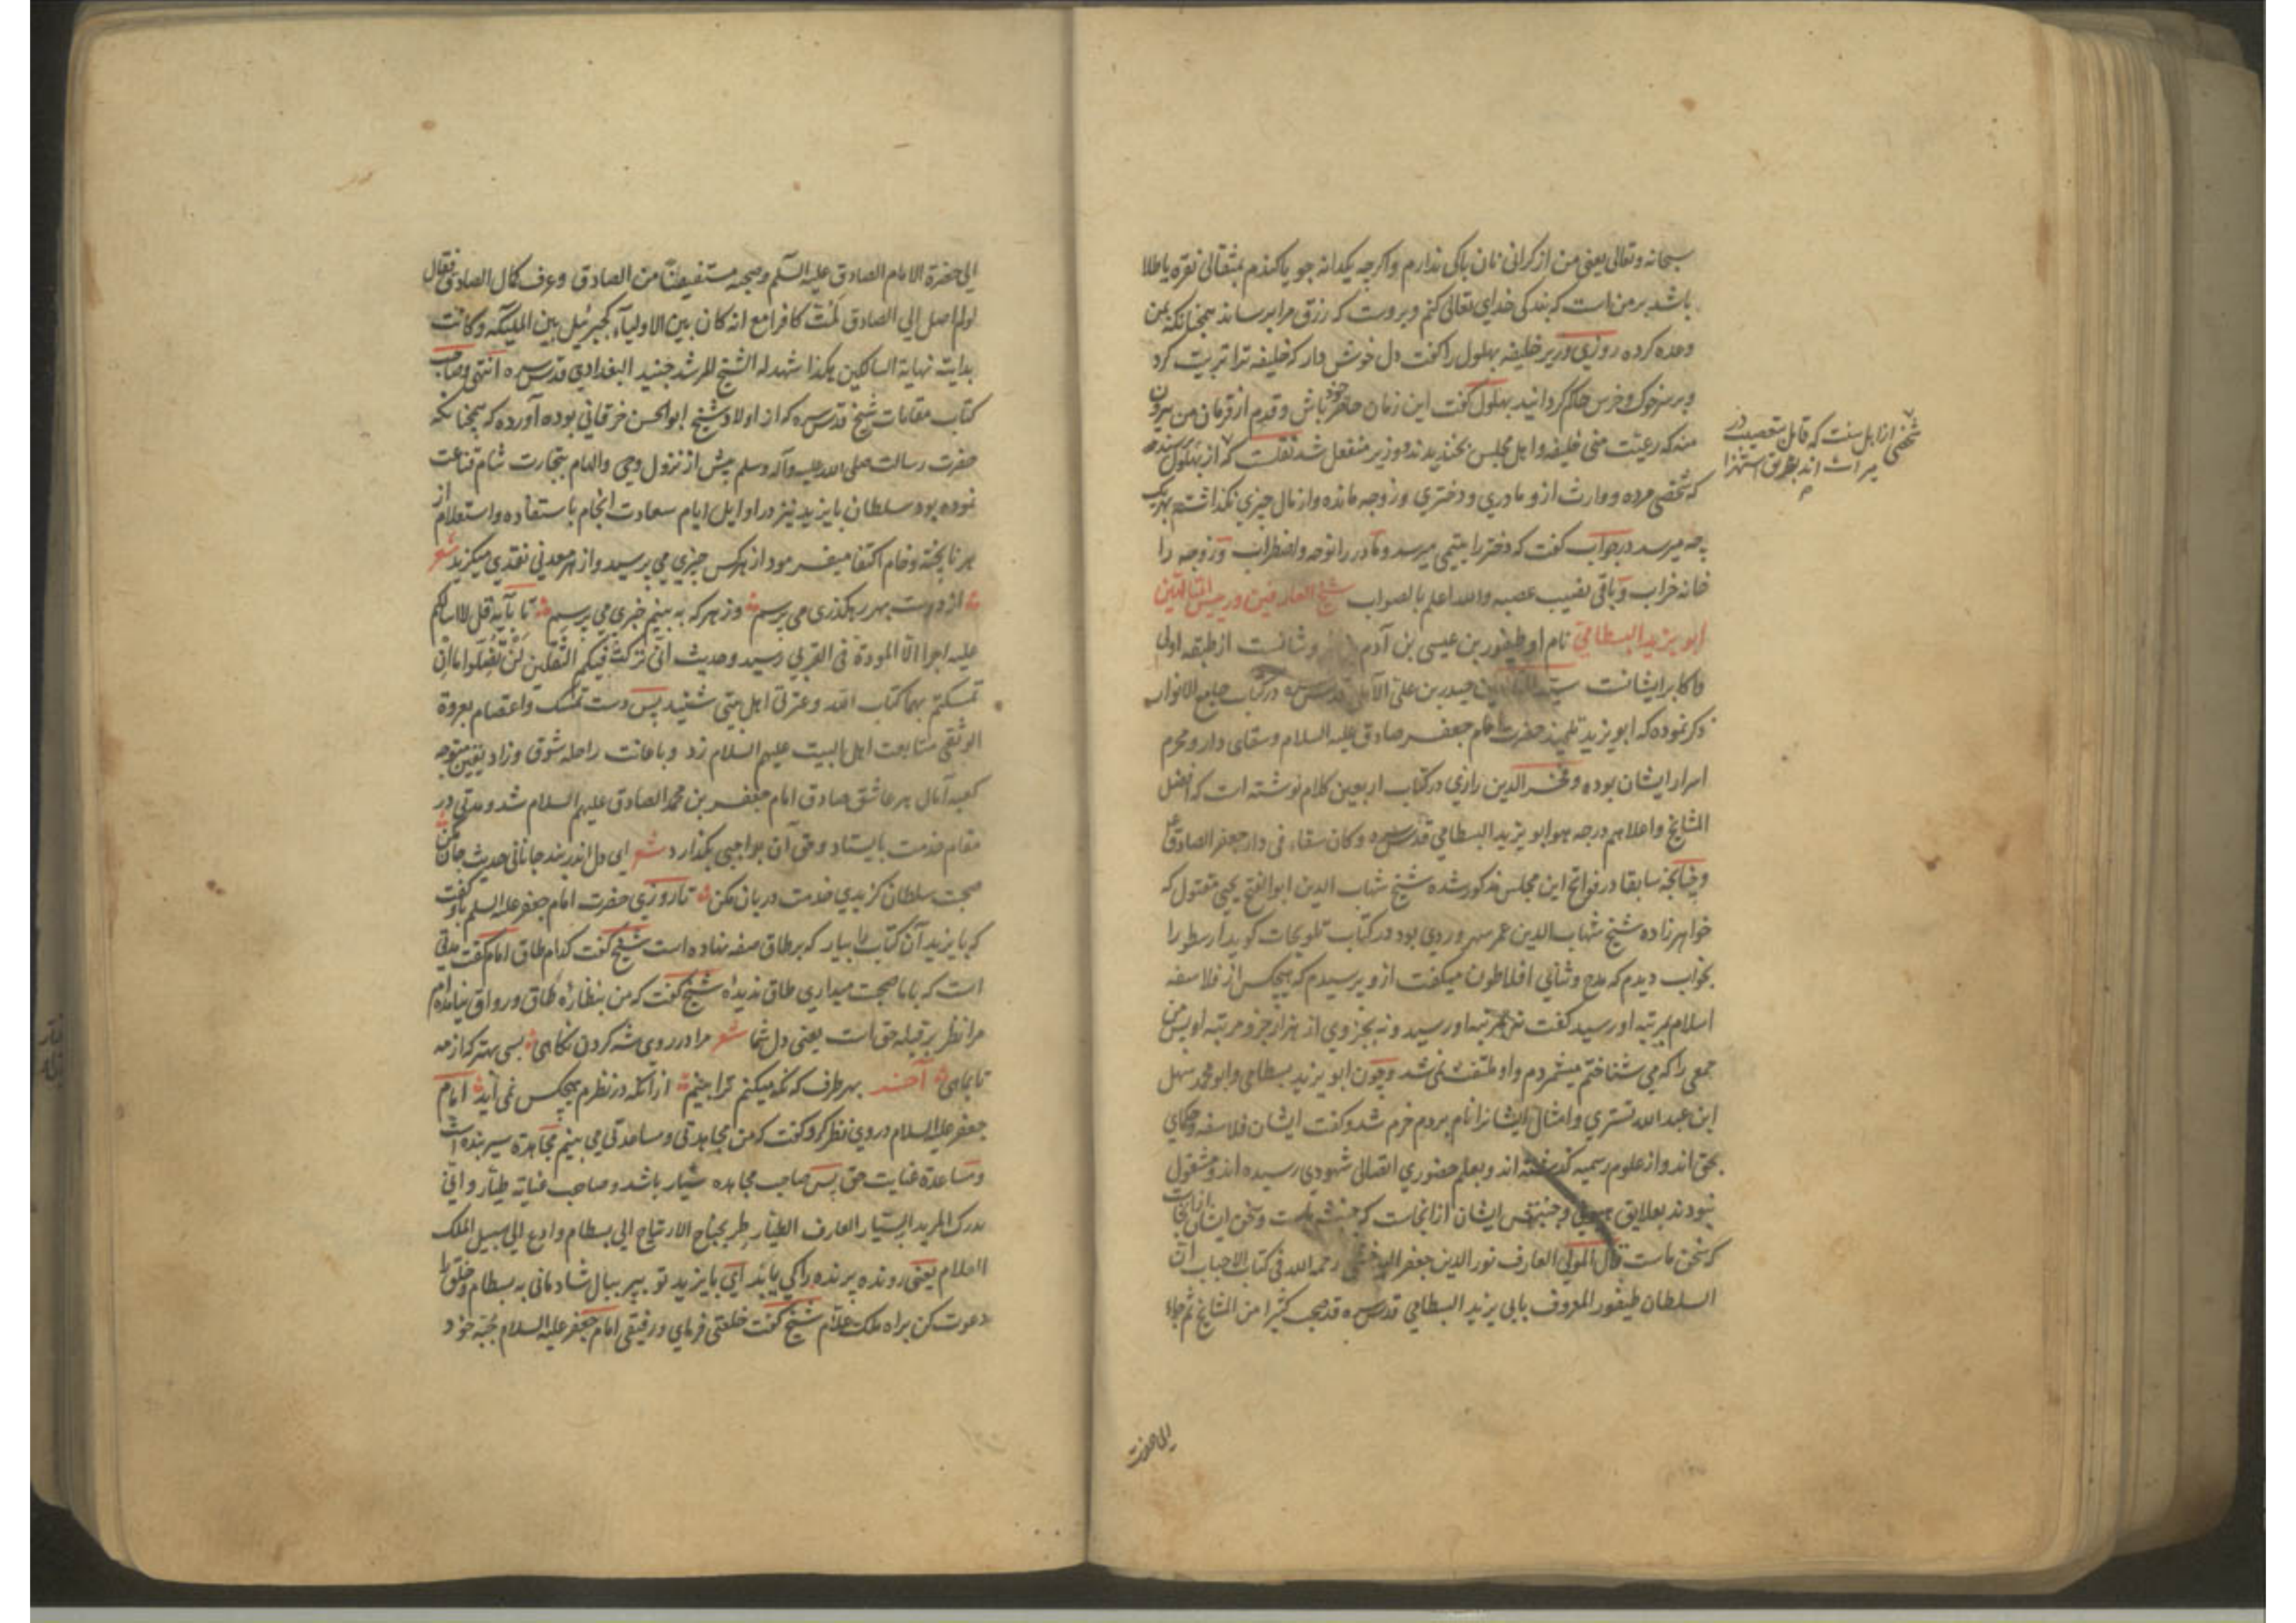 سبحانه وتعالی یعنی من از کرانی نان باکی ندارم واکرچه یکدانه جو یا کندم بمثقالی نقره یا طلا
باشد بر من است که بندکی خدای تعالی کنم وبروست که رزق مرا برساند همچنانکه بمن
وعده کرده روزی وزیر خلیفه بهلول را کفت دل خوش دار که خلیفه ترا تربیت کرد
وبر سر خوک وخرس حاکم کردانید بهلول کفت این زمان حاضر خود باش وقدم از فرمان من بیرون
منه که رعیت منی خلیفه واهل مجلس بخندیدند ووزیر منفعل شد نقلست که از بهلول پرسیدند
که شخصی مرده ووارث ازو مادری ودختری وزوجه مانده واز مال چیزی نکذاشته بهریک
چه میرسد در جواب کفت که دختر را یتیمی میرسد ومادر را نوحه واضطراب وزوجه را
خانه خراب وباقی نصیب عصبه والله اعلم بالصواب شیخ العارفین ورییس المتالهین
ابو یزید البسطامی نام او طیفور بن عیسی بن آدم وشانست از طبقه اولی
واکابر ایشانست سید حیدر بن علی الآملی قدس سره در کتاب جامع الانوار
ذکر نموده که ابو یزید تلمیذ حضرت امام جعفر صادق علیه السلام وسقای دار ومحرم
اسرار ایشان بوده وفخر الدین رازی در کتاب اربعین کلام نوشته است که افضل
المشایخ واعلاهم درجه هو ابو یزید البسطامی قدس سره وکان سقاء فی دار جعفر الصادق ع
وچنانچه سابقا در فواتح این مجلس مذکور شده شیخ شهاب الدین ابو الفتح یحیی مقتول که
خواهرزاده شیخ شهاب الدین عمر سهروردی بود در کتاب تلویحات کوید ارسطو را
بخواب دیدم که مدح وثنای افلاطون میکفت ازو پرسیدم که هیچکس از فلاسفه
اسلام بمرتبه او رسید کفت نه بمرتبه او رسید ونه بجزوی از هزار جزو مرتبه او پس من
جمعی را که می شناختم میشمردم واو ملتفت نمی شد وچون ابو یزید بسطامی وابو محمد سهل
ابن عبد الله تستری وامثال ایشانرا نام بردم خرم شد وکفت ایشان فلاسفه وحکمای
بحق اند واز علوم رسمیه کذشته اند وبعلم حضوری اتصالی شهودی رسیده اند ومشغول
نبودند بعلایق وجنبش ایشان از آنجاست که جنبش ماست وسخن ایشان از آنجاست
که سخن ماست قال المولی العارف نور الدین جعفر رحمه الله فی کتاب الاحباب ان
السلطان طیفور المعروف بابی یزید البسطامی قدس سره قد صحب کثیرا من المشایخ ثم جاء
شخصی از اهل سنت که قایل بتعصیب در
میراث اند بطریق استهزا
الی حضرت
الی حضرة الامام الصادق علیه السلم وصحبه مستفیضا من الصادق وعرف کمال الصادق فقال
لو لم اصل الی الصادق لمت کافرا مع انه کان بین الاولیاء کجبرئیل بین الملیکه وکانت
بدایته نهایة السالکین هکذا شهد له الشیخ المرشد جنید البغدادی قدس سره انتهی وصاحب
کتاب مقامات شیخ قدس سره که از اولاد شیخ ابو الحسن خرقانی بوده آورده که همچنانکه
حضرت رسالت صلی الله علیه وآله وسلم پیش از نزول وحی والهام بتجارت شام قناعت
نموده بود سلطان بایزید نیز در اوایل ایام سعادت انجام باستفاده واستعلام از
هر نا پخته وخام اکتفا میفرمود از هرکس چیزی می پرسید واز هر معدنی نقدی میکزید شعر
از دوست بهر رهکذری می پرسم وز هرکه به بینم خبری می پرسم تا بآیه قل لا اسالکم
علیه اجرا الا المودة فی القربی رسید وحدیث انی ترکت فیکم الثقلین لن تضلوا ما ان
تمسکتم بهما کتاب الله وعترتی اهل بیتی شنید پس دست تمسک واعتصام بعروة
الوثقی متابعت اهل البیت علیهم السلام زد وباعانت راحله شوق وزاد یقین متوجه
کعبه آمال هر عاشق صادق امام جعفر بن محمد الصادق علیهم السلام شد ومدتی در
مقام خدمت بایستاد وحق آن بواجبی بکذارد شعر ای دل اندر بند جانانی حدیث جان مکن
صحبت سلطان کزیدی خدمت دربان مکن تا روزی حضرت امام جعفر علیه السلم باو کفت
که بایزید آن کتاب را بیار که بر طاق صفه نهاده است شیخ کفت کدام طاق امام کفت مدتی
است که با ما صحبت میداری طاق ندیدهٔ شیخ کفت که من بنظارهٔ طاق ورواق نیامده ام
مرا نظر بر قبله حق است یعنی دل شما شعر مرا در روی شه کردن نکاهی بسی بهتر که از مه
تا بماهی آخر بهر طرف که نکه میکنم ترا بینم از آنکه در نظرم هیچکس نمی آید امام
جعفر علیه السلام در وی نظر کرد وکفت که من مجاهدتی ومساعدتی می بینم مجاهدة سیر بنده است
ومساعدة عنایت حق پس صاحب مجاهده سیار باشد وصاحب عنایة طیار وانی
یدرک المرید السیار العارف الطیار طر بجناح الارتیاح الی بسطام وادع الی سبیل الملک
العلام یعنی رونده پرنده را کی یابد ای بایزید تو بپر ببال شادمانی به بسطام وخلق را
دعوت کن براه ملک علام شیخ کفت خلعتی فرمای ورفیقی امام جعفر علیه السلام جبه خود